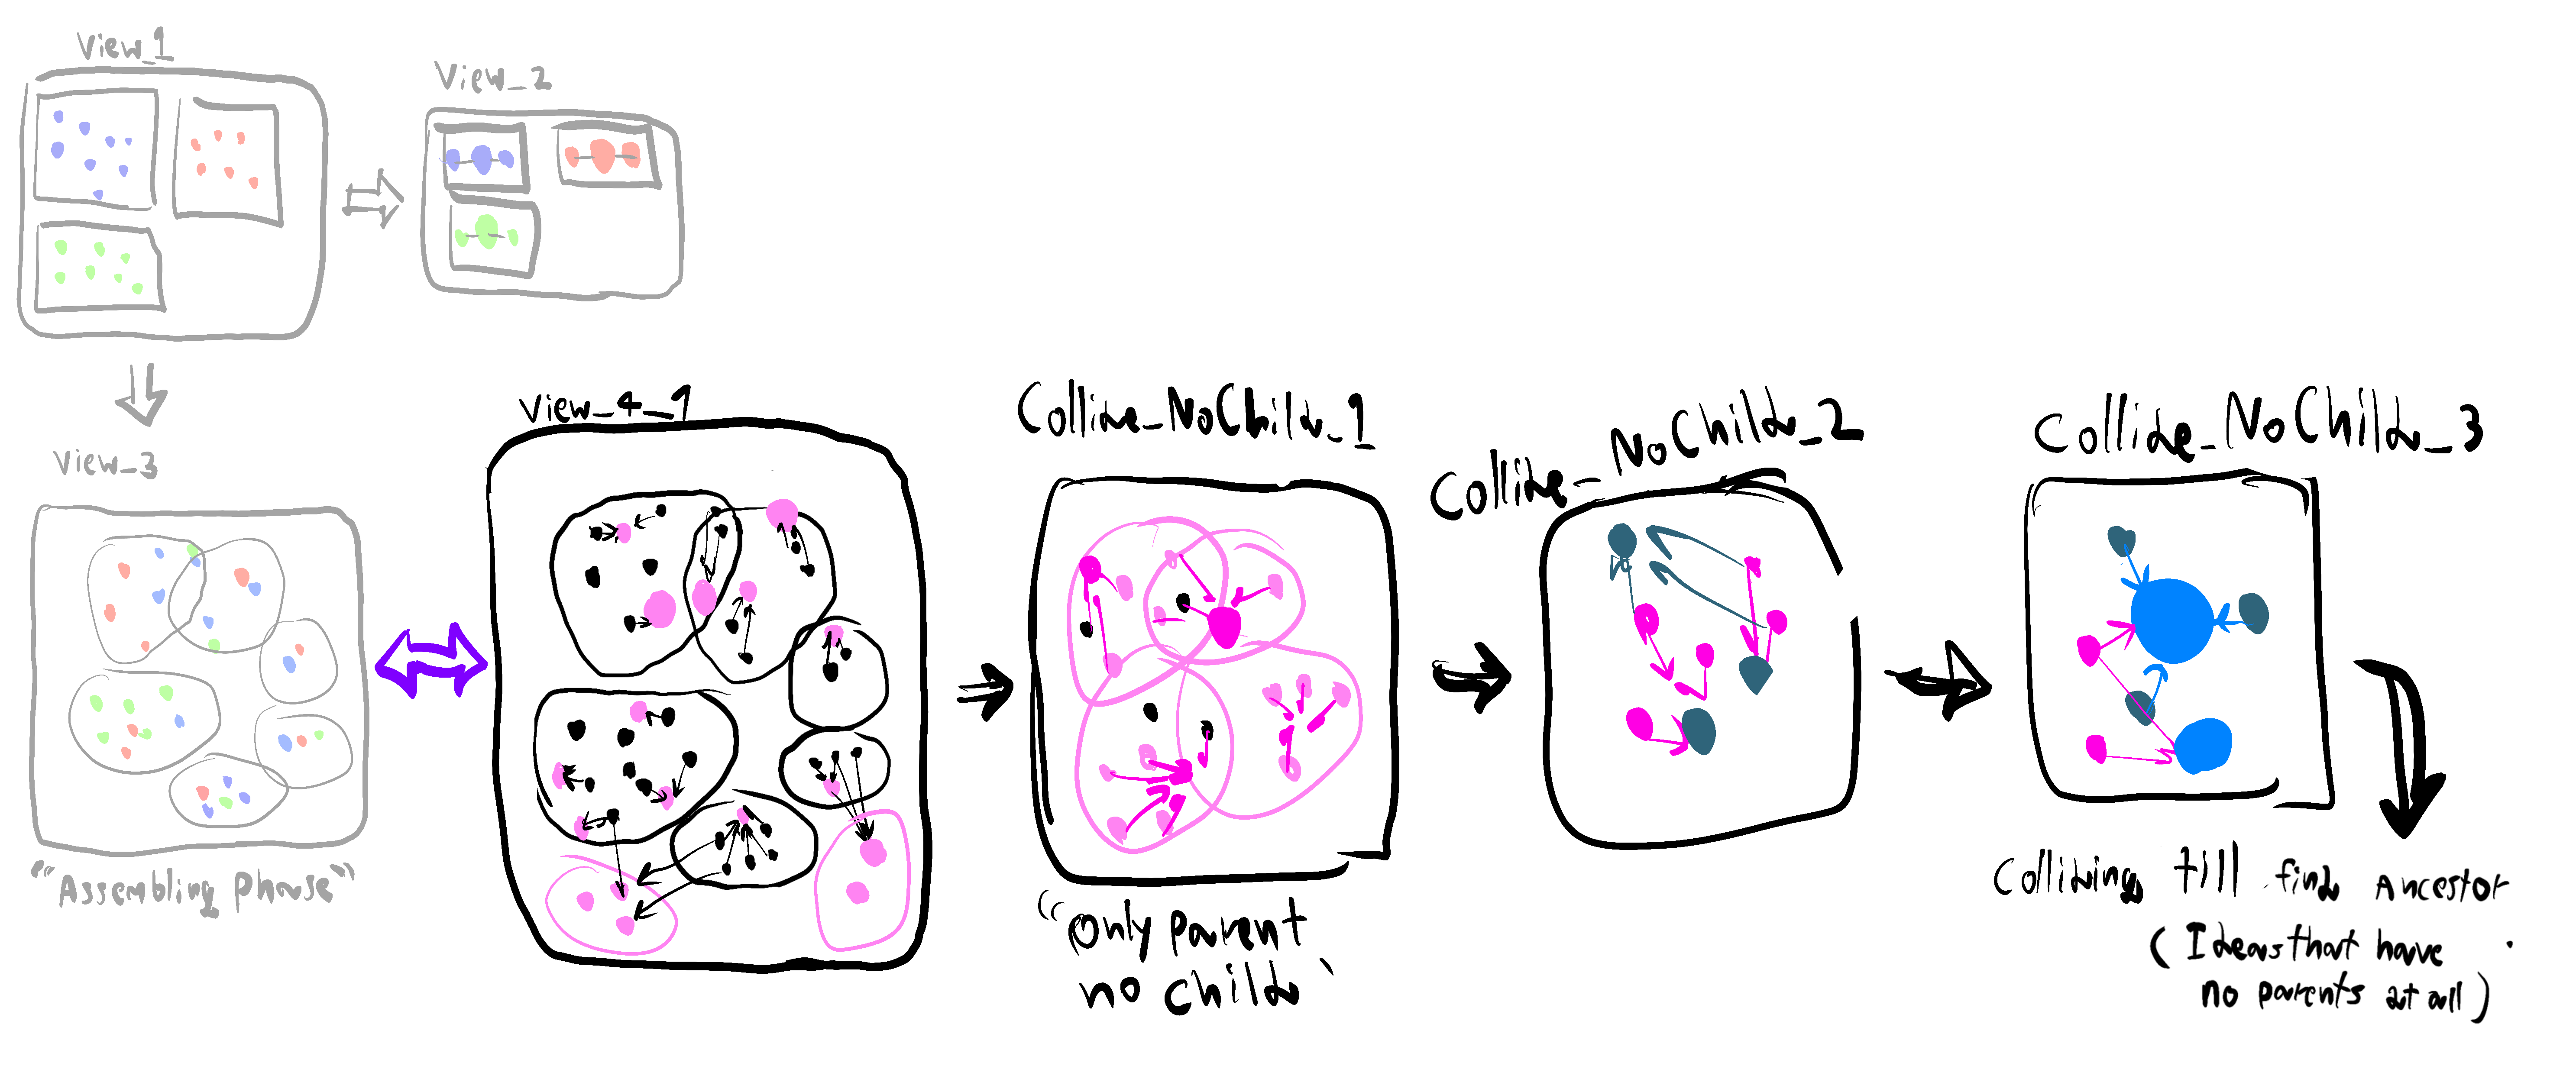 View_1
View_2
View_3
"Assembling phase"
View_4_1
Collide_NoChild_1
"only parent
no child"
Collide_NoChild_2
Collide_NoChild_3
Colliding till find Ancestor
(Ideas that have
no parents at all)